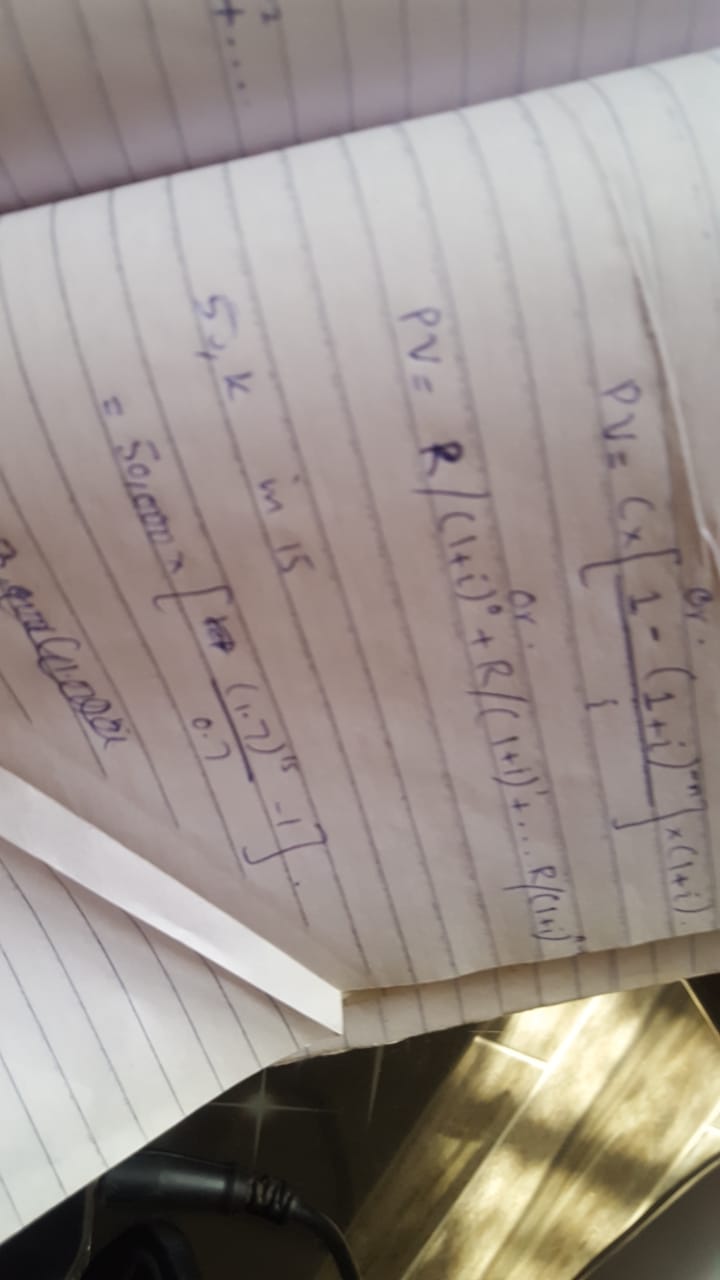 or.
PV = C x [ 1 - (1+i)⁻ⁿ / i ] x (1+i).
or.
PV = R/(1+i)⁰ + R/(1+i)¹ + ... R/(1+i)
k in 15
= 50,000 x [ (1.7)¹⁵ - 1 / 0.7 ].
² + ....